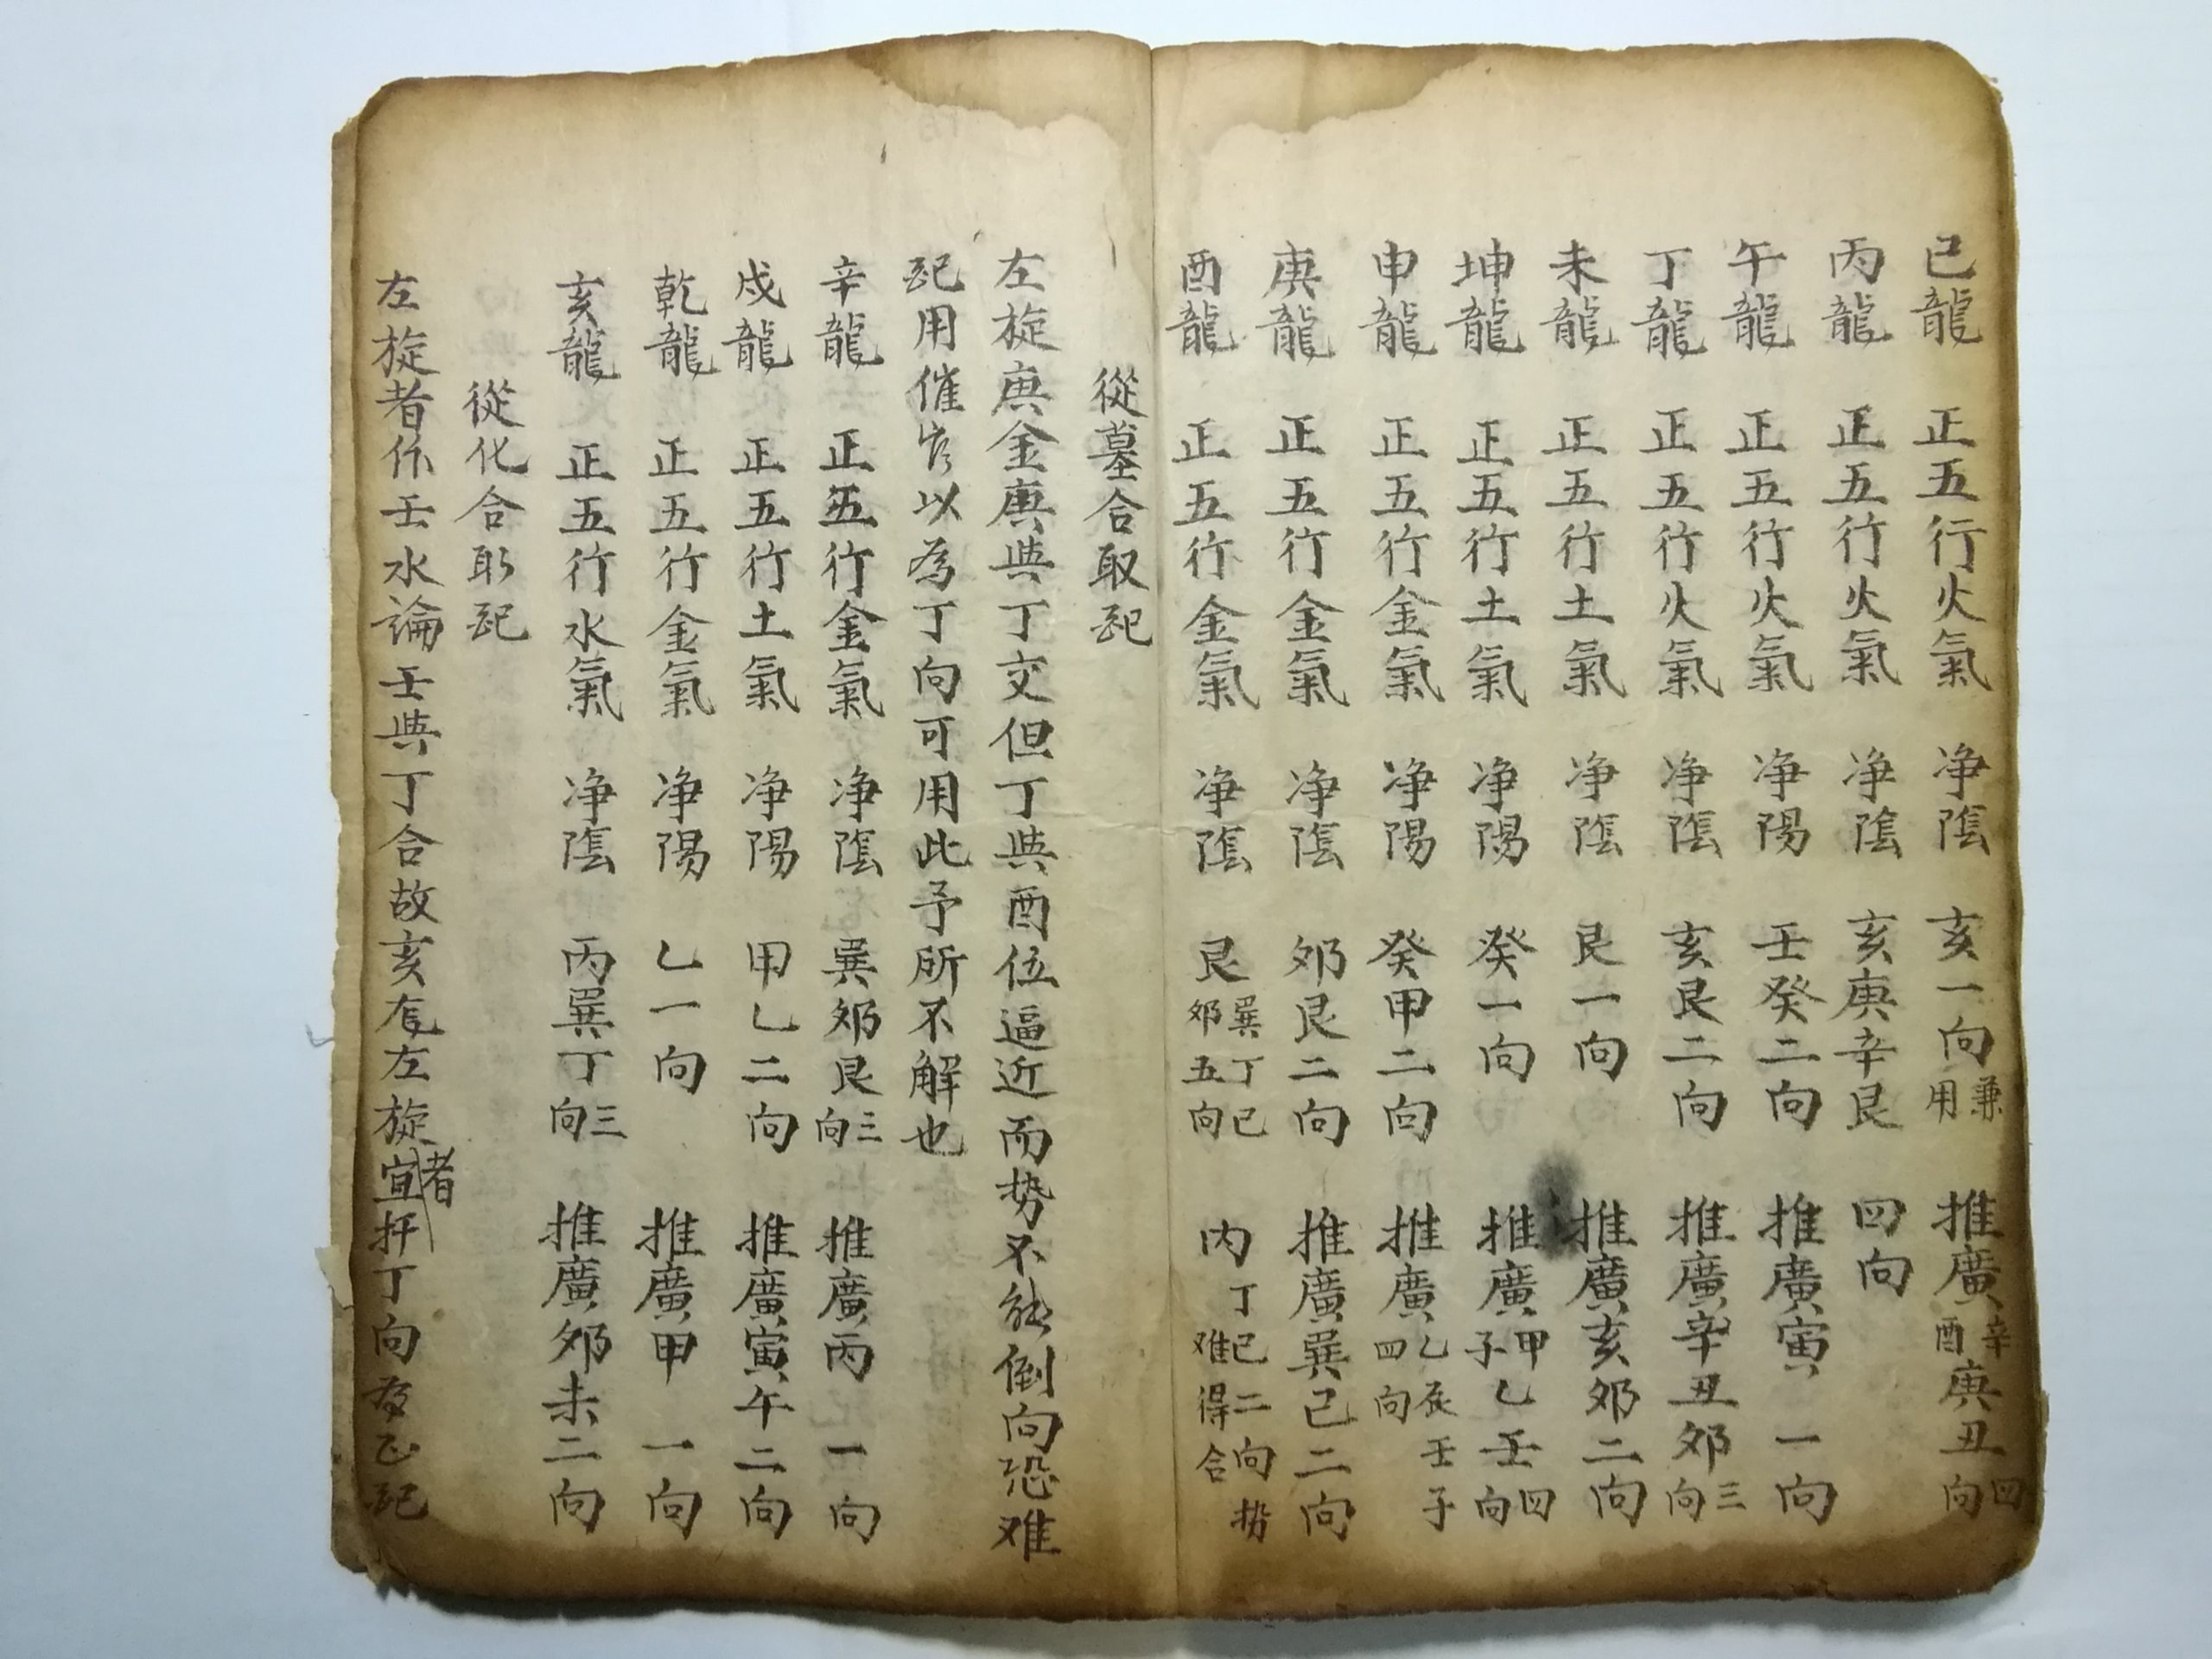 巳龍 正五行火氣 净隂 亥一向兼用 推廣辛酉庚丑四向
丙龍 正五行火氣 净隂 亥庚辛艮四向
午龍 正五行火氣 净陽 壬癸二向 推廣寅一向
丁龍 正五行火氣 净隂 亥艮二向 推廣辛丑夘三向
未龍 正五行土氣 净隂 艮一向 推廣亥夘二向
坤龍 正五行土氣 净陽 癸一向 推廣甲子乙壬四向
申龍 正五行金氣 净陽 癸甲二向 推廣乙辰壬子四向
庚龍 正五行金氣 净隂 夘艮二向 推廣巽巳二向
酉龍 正五行金氣 净隂 艮巽丁巳夘五向 内丁巳二向势难得合
從墓合取
左旋庚金庚與丁交但丁與酉位逼近而势不能倒向恐难
用催官以為丁向可用此予所不解也
辛龍 正五行金氣 净隂 巽夘艮三向 推廣丙一向
戍龍 正五行土氣 净陽 甲乙二向 推廣寅午二向
乾龍 正五行金氣 净陽 乙一向 推廣甲一向
亥龍 正五行水氣 净隂 丙巽丁三向 推廣夘未二向
從化合取
左旋者作壬水論壬與丁合故亥龙左旋者宜扦丁向為正